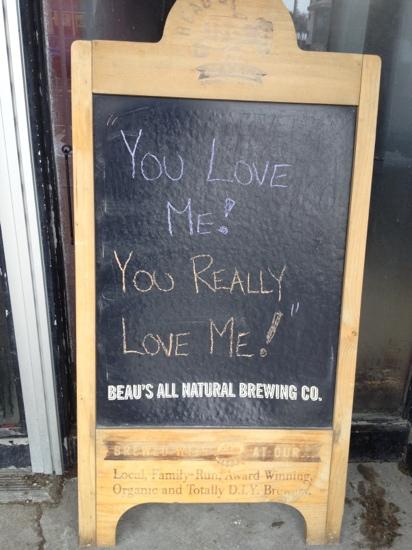 "YOU LOVE
ME!
YOU REALLY
LOVE ME!"
BEAU'S ALL NATURAL BREWING CO.
BREWED WITH AT OUR
Local, Family-Run, Award Winning,
Organic and Totally D.I.Y. Brewery.